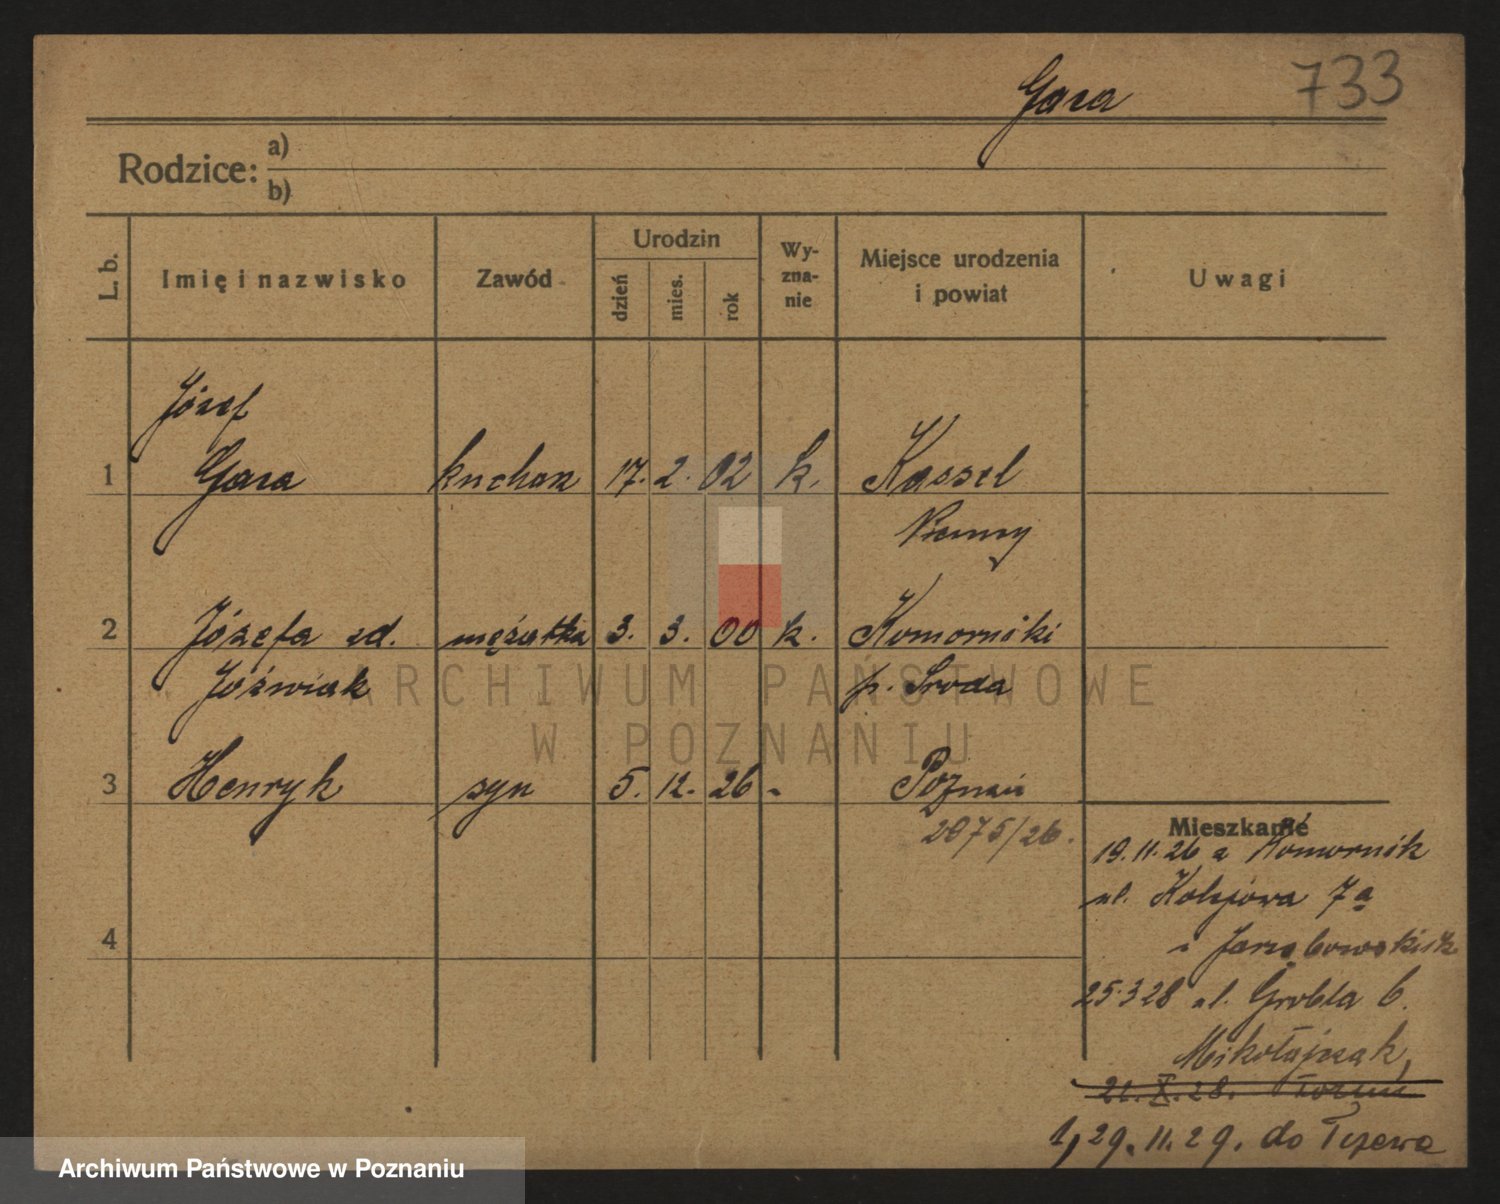 Gara 733
Rodzice: a)
b)
L. b. Imię i nazwisko Zawód Urodzin dzień mies. rok Wy-zna-nie Miejsce urodzenia i powiat Uwagi
Józef
1 Gara kucharz 17. 2. 02 k. Kassel
Niemcy
2 Józefa zd. mężatka 3. 3. 00 k. Komorniki
Jóźwiak p. Środa
ARCHIWUM PAŃSTWOWE
W POZNANIU
3 Henryk syn 5. 12. 26 - Poznań
2075/26.
Mieszkanie
19.11.26 z Komornik
ul. Kolejowa 7a
25.3 28 ul. Grobla 6.
Mikołajczak
21. X. 28. Toruń
4
1, 29. 11. 29. do Tczewa
Archiwum Państwowe w Poznaniu